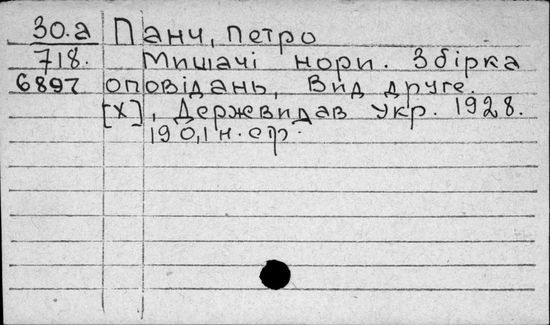 30.а Панч, Петро
718. Мишачі нори. Збірка
6897 оповідань, Вид друге.
[Х], Держвидав Укр. 1928.
190,1 н. стр.